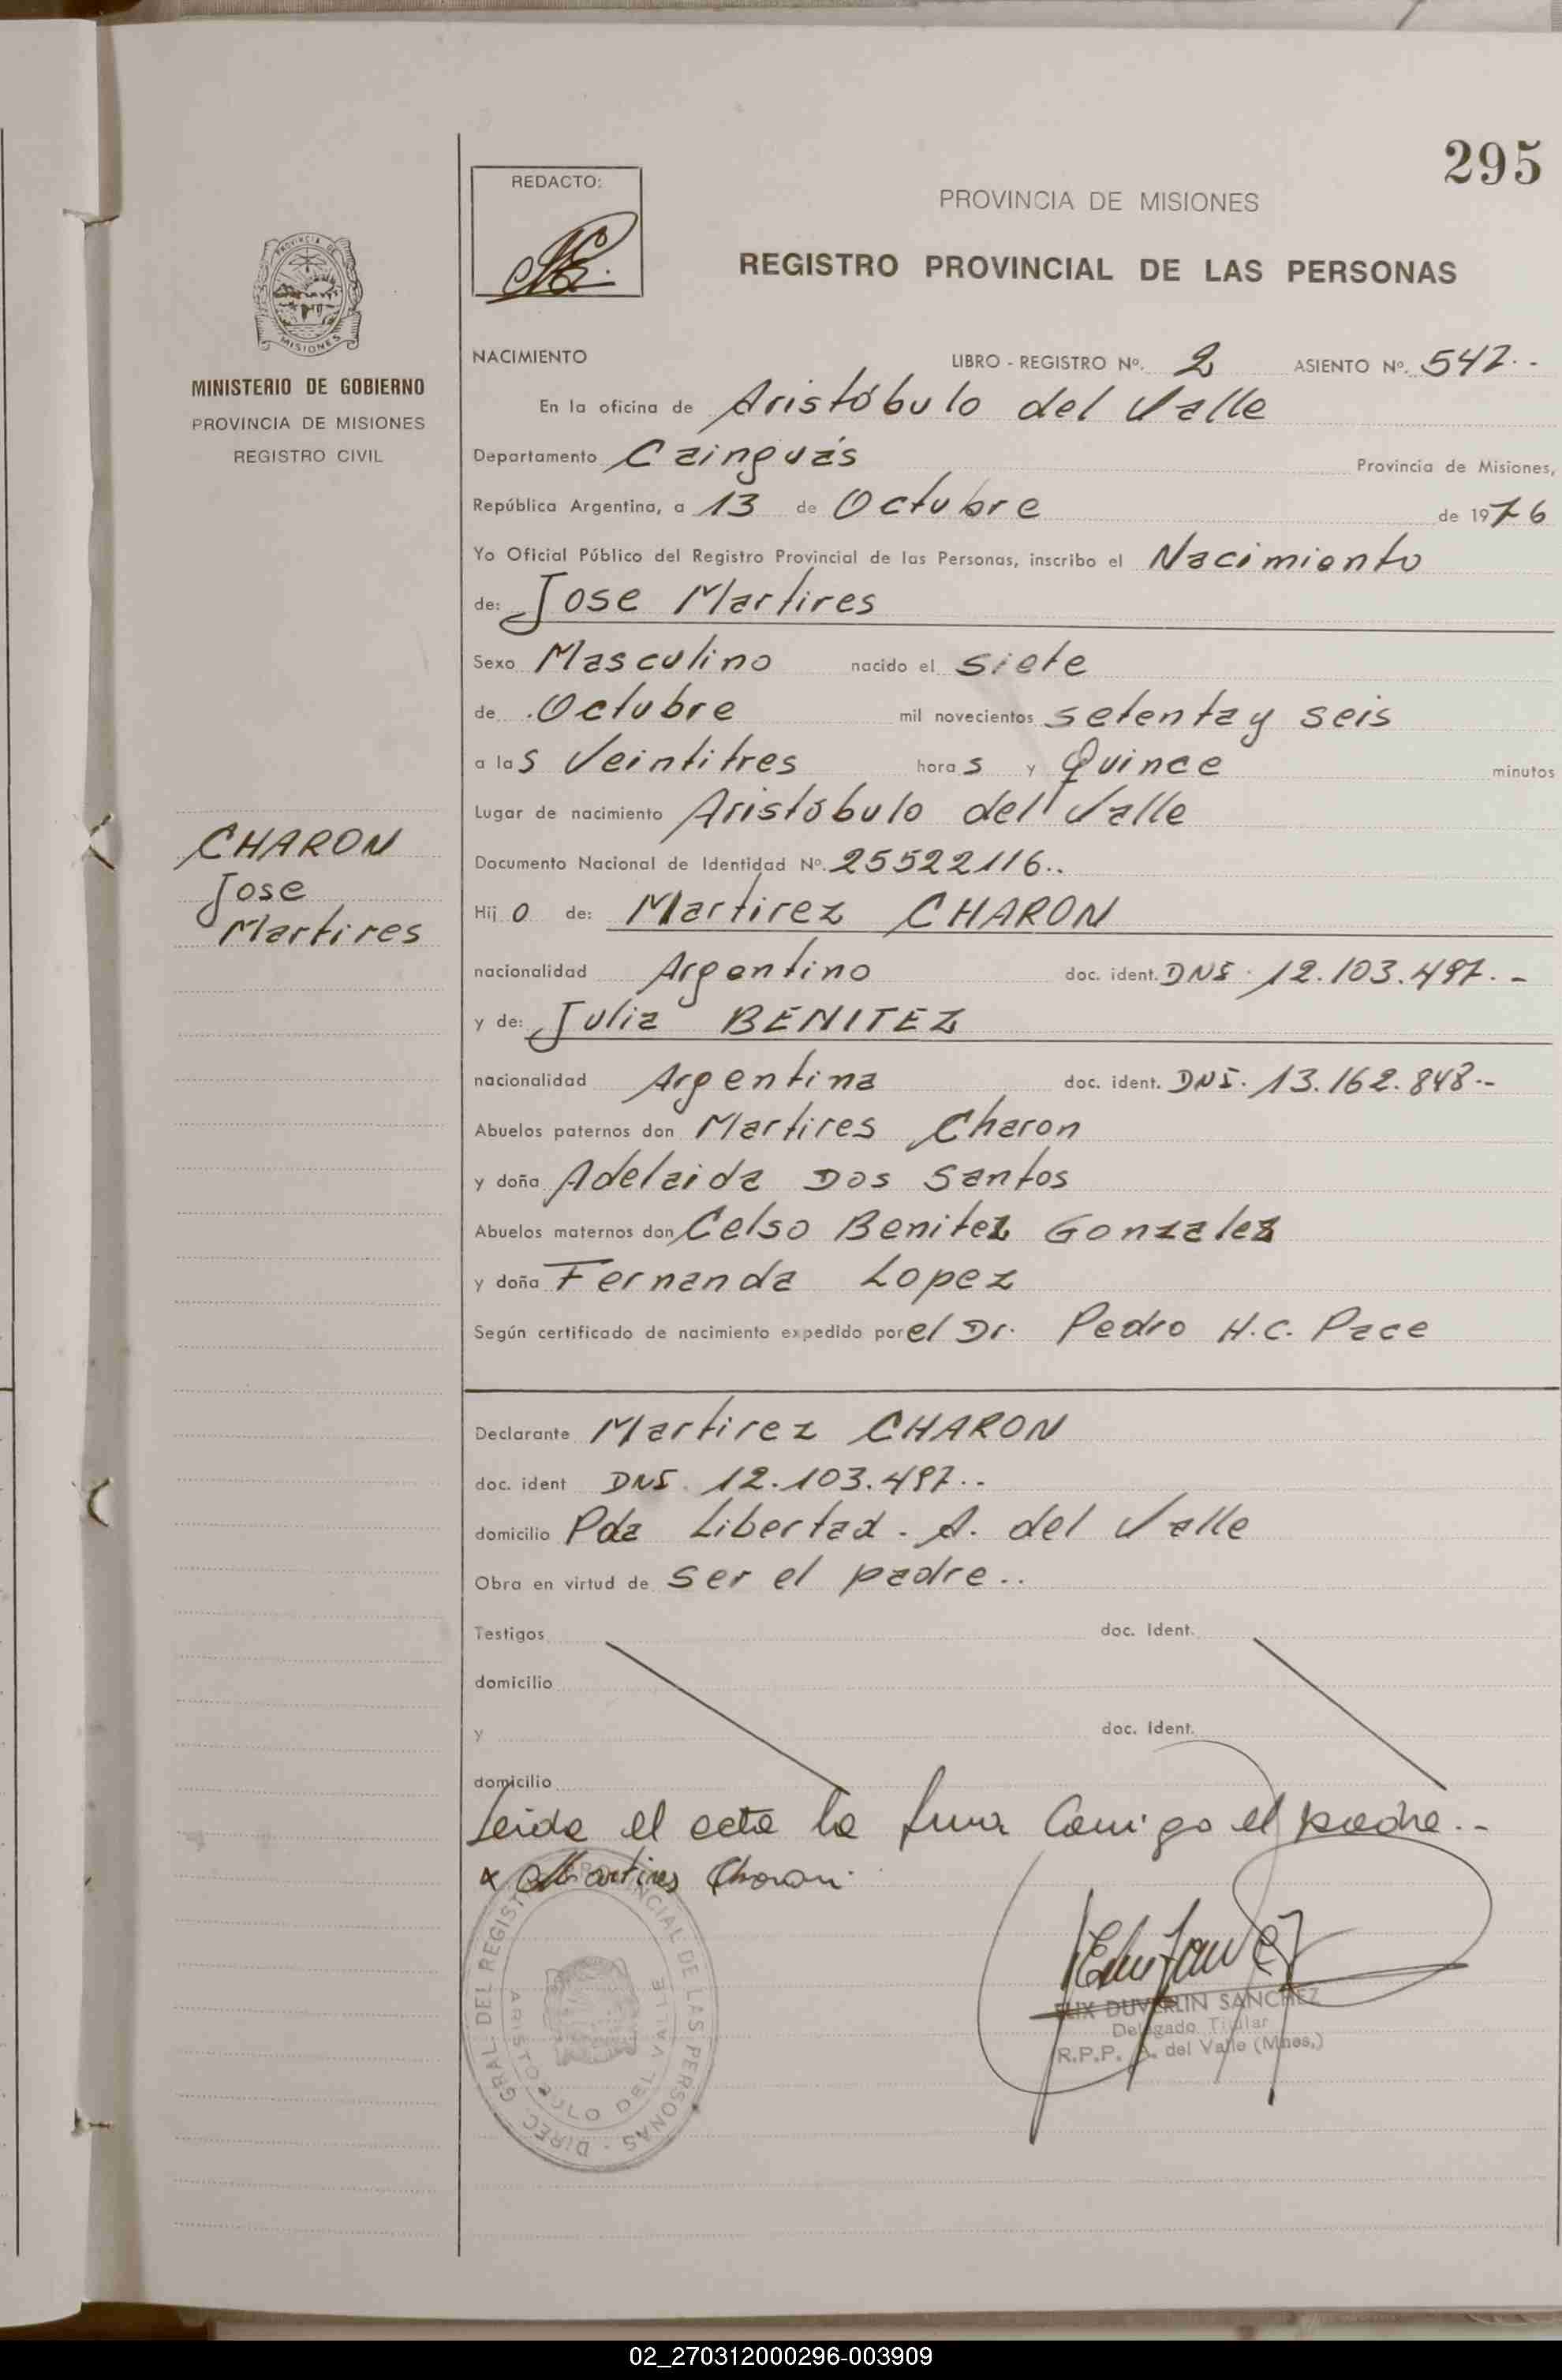 295
REDACTO:
PROVINCIA DE MISIONES
REGISTRO PROVINCIAL DE LAS PERSONAS
PROVINCIA DE
MISIONES
MINISTERIO DE GOBIERNO
PROVINCIA DE MISIONES
REGISTRO CIVIL
CHARON
Jose
Martires
NACIMIENTO LIBRO - REGISTRO Nº. 2 ASIENTO Nº. 547.-
En la oficina de Aristóbulo del Valle
Departamento Cainguás Provincia de Misiones,
República Argentina, a 13 de Octubre de 1976
Yo Oficial Público del Registro Provincial de las Personas, inscribo el Nacimiento
de: Jose Martires
Sexo Masculino nacido el siete
de Octubre mil novecientos setenta y seis
a las Veintitres horas y Quince minutos
Lugar de nacimiento Aristóbulo del Valle
Documento Nacional de Identidad Nº. 25522116..
Hijo de: Martirez CHARON
nacionalidad Argentino doc. ident. DNI. 12.103.497.-
y de: Julia BENITEZ
nacionalidad Argentina doc. ident. DNI. 13.162.848.-
Abuelos paternos don Martires Charon
y doña Adelaida Dos Santos
Abuelos maternos don Celso Benitez Gonzalez
y doña Fernanda Lopez
Según certificado de nacimiento expedido por el Dr. Pedro H.C. Pace
Declarante Martirez CHARON
doc. ident DNI. 12.103.497..
domicilio Pda Libertad. A. del Valle
Obra en virtud de ser el padre..
Testigos doc. Ident.
domicilio
y doc. Ident.
domicilio
Leida el acta la firma Conmigo el padre..
x Martires Charon
DIREC. GRAL. DEL REGISTRO PROVINCIAL DE LAS PERSONAS
ARISTOBULO DEL VALLE
FELIX DUVERLIN SANCHEZ
Delegado Titular
R.P.P. A. del Valle (Mnes.)
02_270312000296-003909